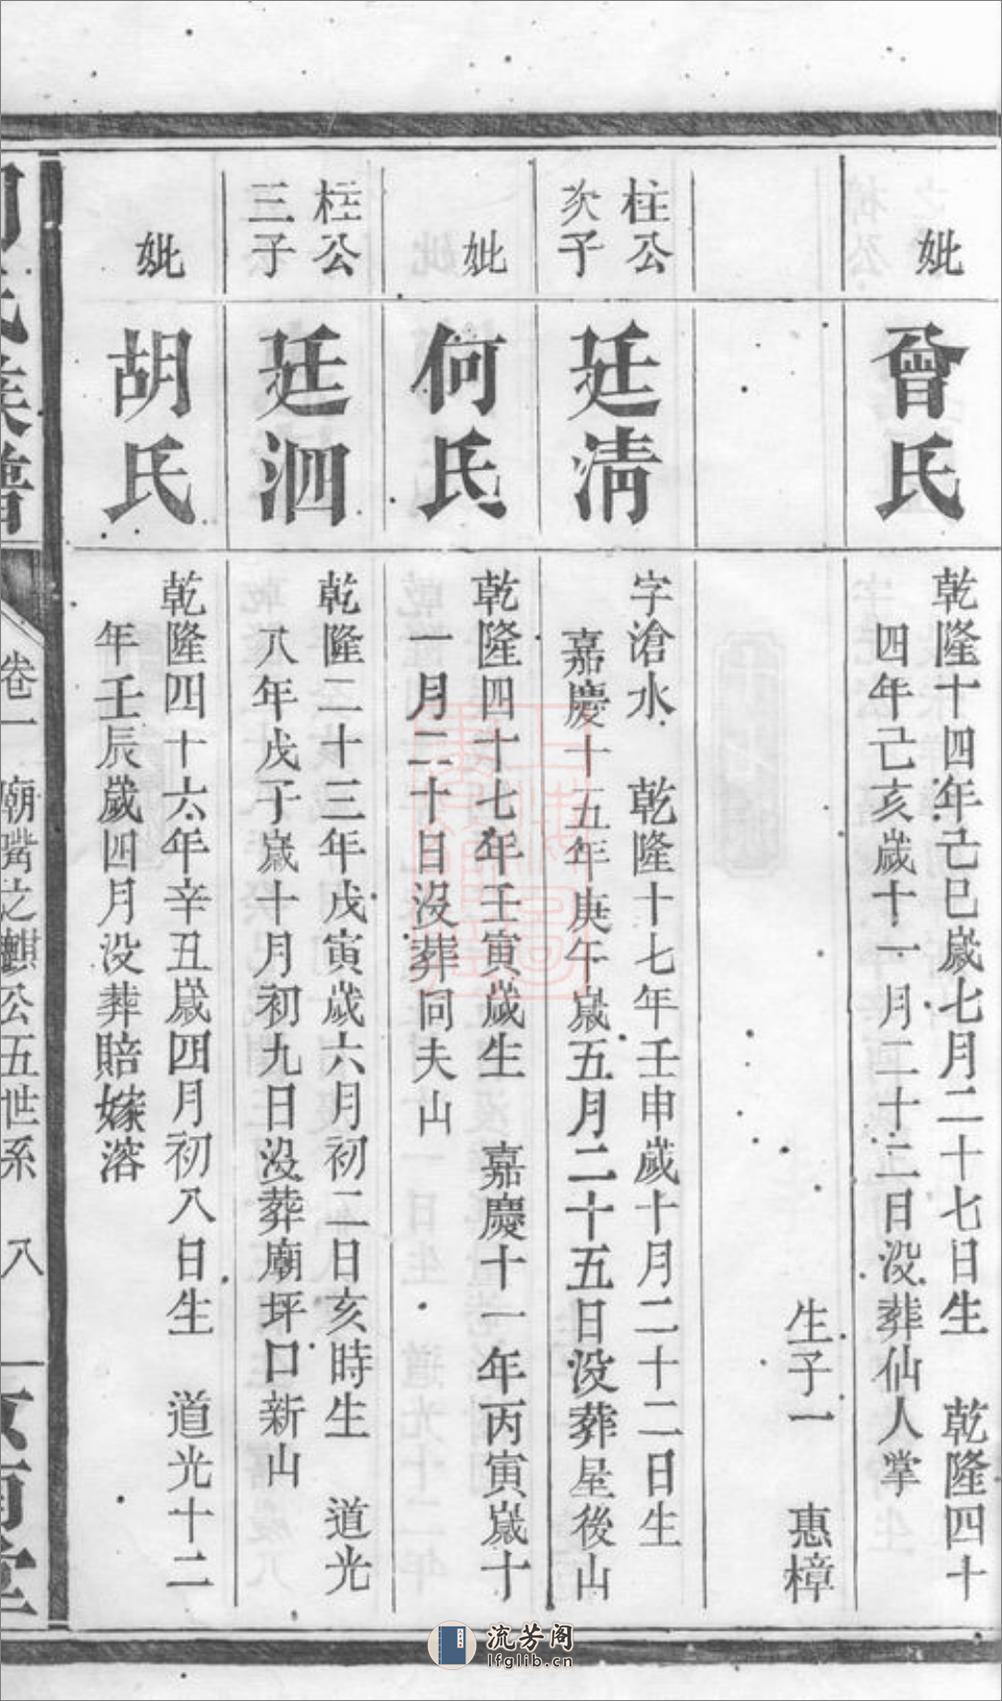 妣
曾氏
乾隆十四年己巳歲七月二十七日生　乾隆四十
四年己亥歲十一月二十二日没葬仙人掌
生子一　惠樟
柱公
次子
廷清
字滄水　乾隆十七年壬申歲十月二十二日生
嘉慶十五年庚午歲五月二十五日没葬屋後山
妣
何氏
乾隆四十七年壬寅歲生　嘉慶十一年丙寅歲十
一月二十日没葬同夫山
柱公
三子
廷泗
乾隆二十三年戊寅歲六月初二日亥時生　道光
八年戊子歲十月初九日没葬廟坪口新山
妣
胡氏
乾隆四十六年辛丑歲四月初八日生　道光十二
年壬辰歲四月没葬賠嫁溶
氏族譜
卷一　廟嘴之麒公五世系　八
流芳阁
lfglib.cn